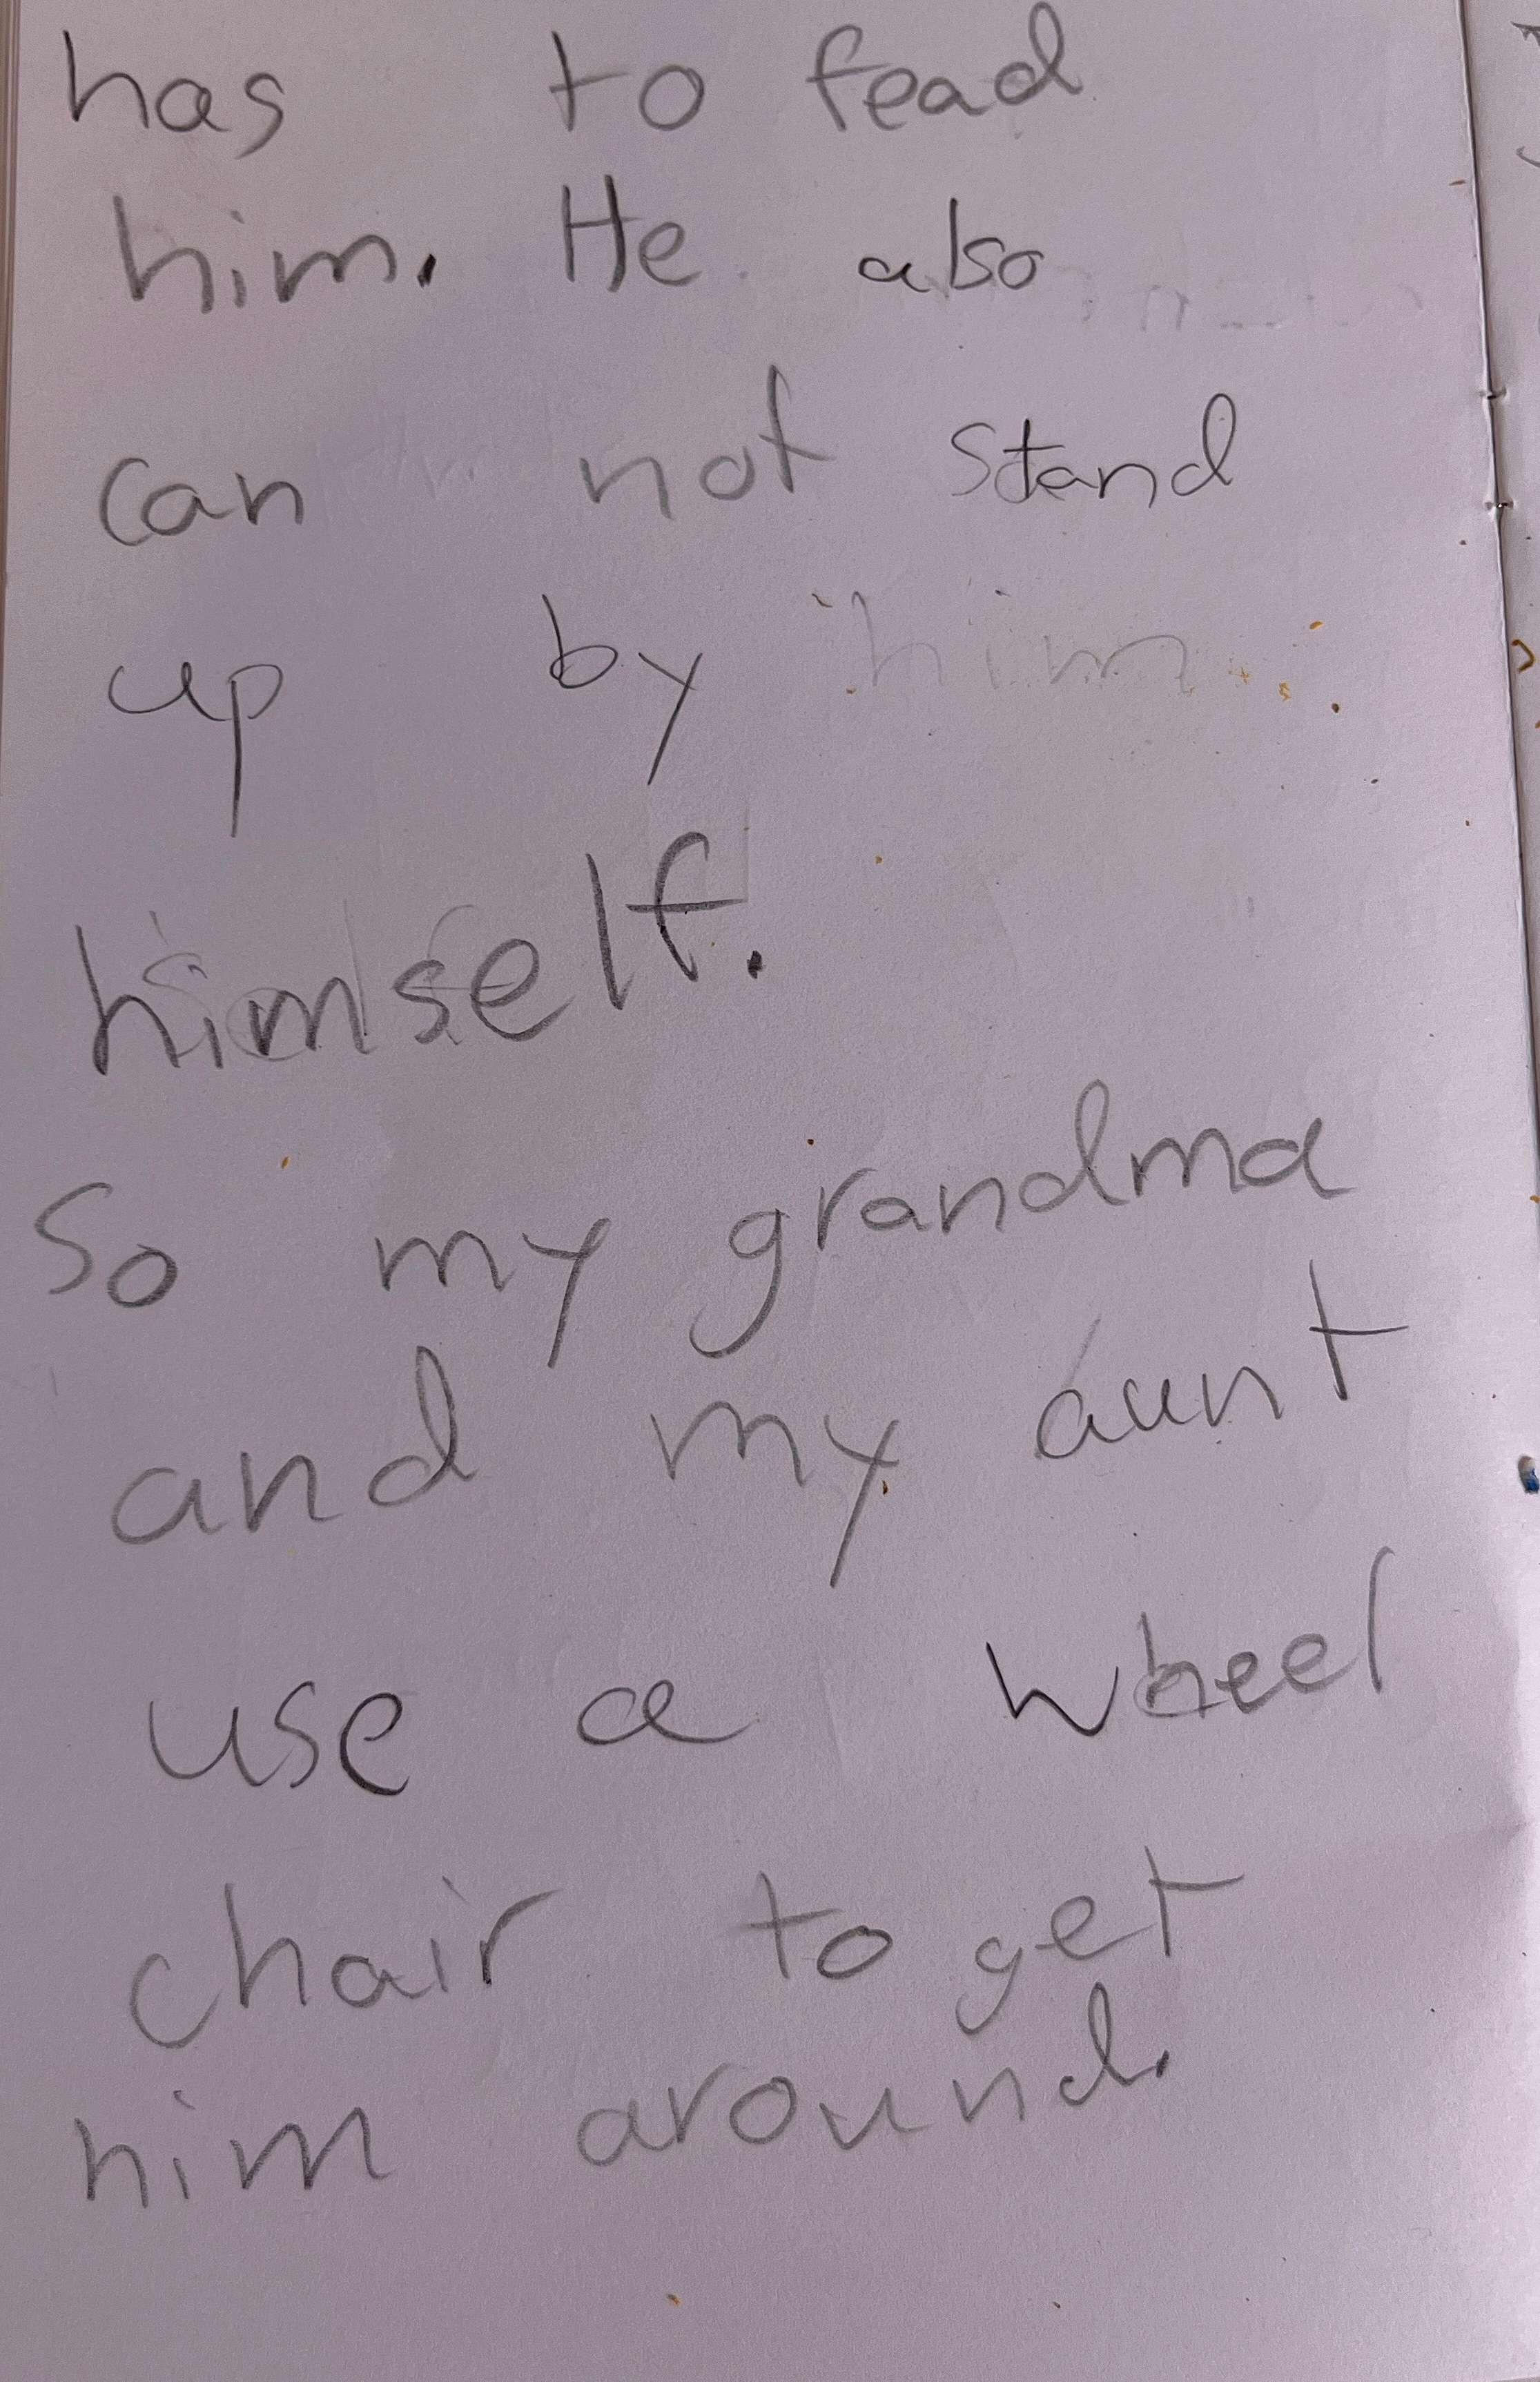 has to fead
him. He also
can not stand
up by him
himself.
So my grandma
and my aunt
use a wheel
chair to get
him around.